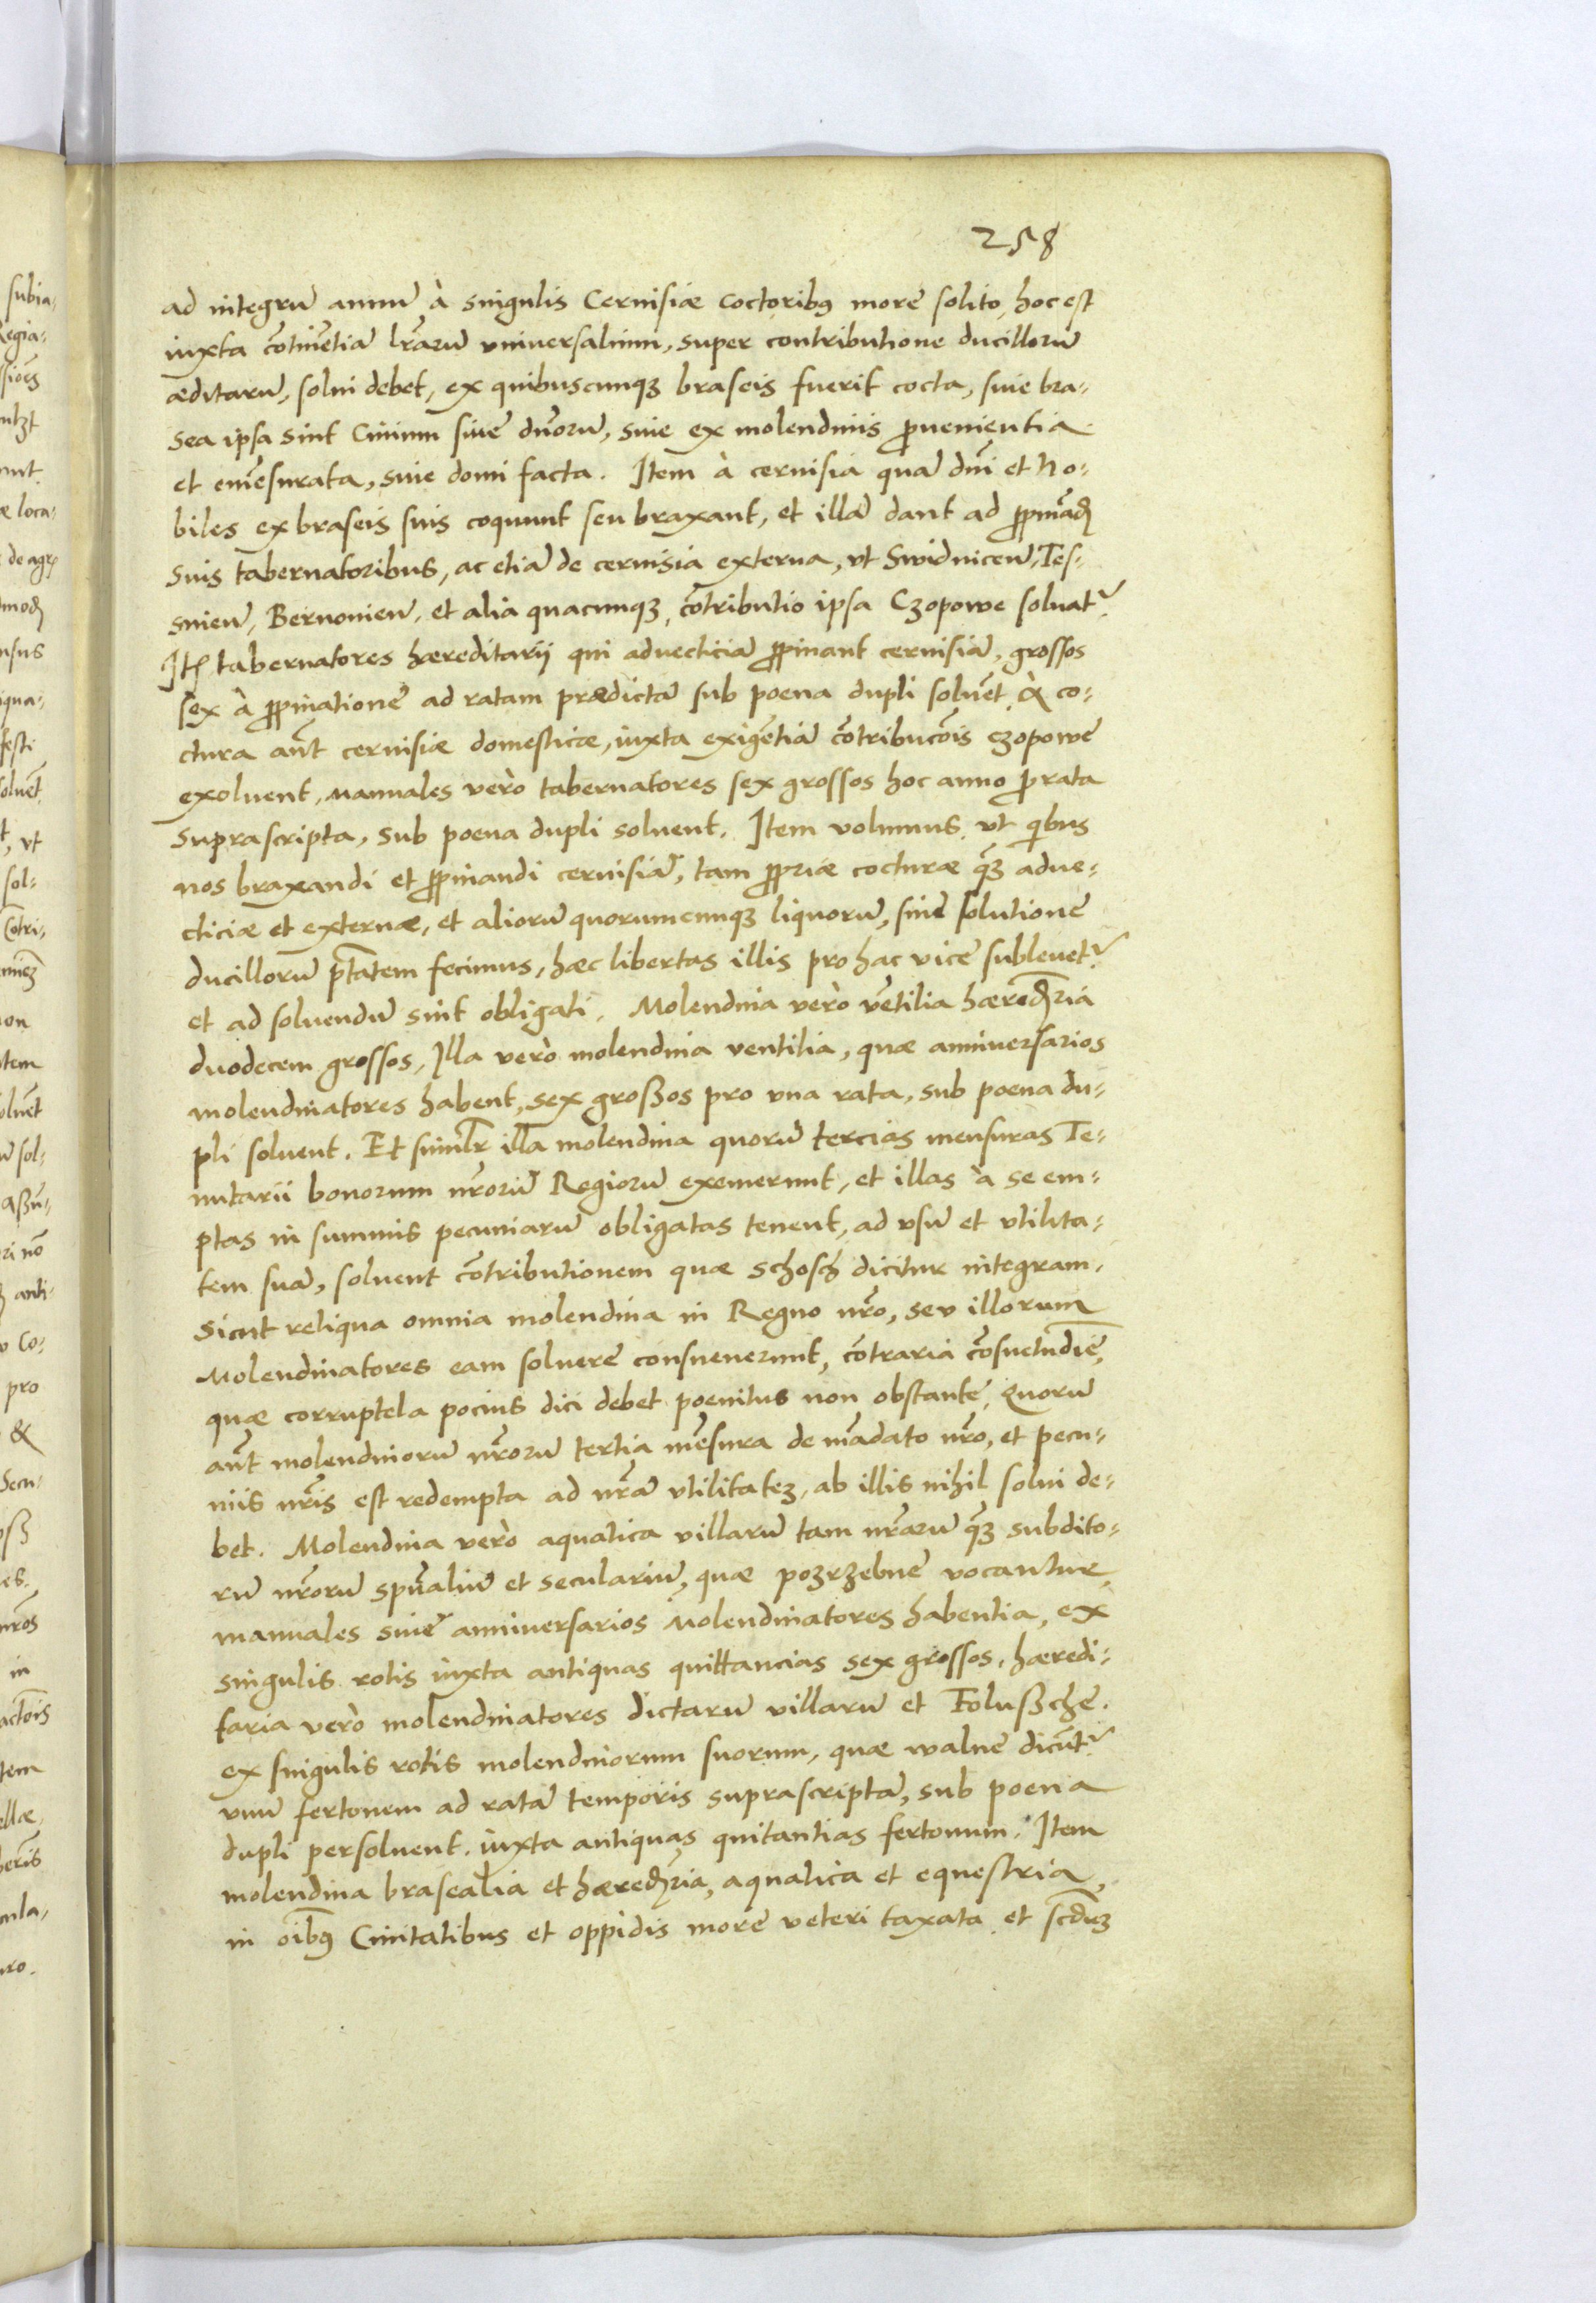 258
ad integrũ annũ à singulis Ceruisiæ coctoribꝰ more solito, hoc est
iuxta cõtinẽtiã lr̃arũ vniuersalium, super contributione ducillorũ
æditarũ, solui debet, ex quibuscunqꝫ braseis fuerit cocta, siue bra-
sea ipsa sint Ciuium siue dñorũ, siue ex molendinis ꝓuenientia
et emẽsurata, siue domi facta. Item à ceruisia quã dñi et No-
biles ex braseis suis coquunt seu braxant, et illã dant ad ꝓpinãdꝫ
suis tabernatoribus, ac etiã de ceruisia externa, vt Swidnicen̄, Tes-
snien̄, Bernouien̄, et alia quacunqꝫ, cõtributio ipsa Czopowe soluat᷑.
Itꝫ tabernatores hæreditarij qui aduecticiã ꝓpinant ceruisiã, grossos
sex à ꝓpinatione ad ratam prædictã sub poena dupli soluẽt, à co-
ctura aũt ceruisiæ domesticæ, iuxta exigẽtiã cõtribucõis czopowe
exoluent, manuales verò tabernatores sex grossos hoc anno ꝓ rata
suprascripta, sub poena dupli soluent. Item volumus, vt qibus
nos braxandi et ꝓpinandi ceruisiã, tam ꝓpriæ cocturæ qꝫ adue-
cticiæ et externæ, et aliorũ quorumcunqꝫ liquorũ, sine solutione
ducillorũ ptãtem fecimus, hæc libertas illis pro hac vice subleuet᷑
et ad soluendũ sint obligati. Molendina verò vẽtilia hæredꝫria
duodecem grossos, Illa verò molendina ventilia, quæ anniuersarios
molendinatores habent, sex großos pro vna rata, sub poena du-
pli soluent. Et simlr̃ illa molendina quorũ tercias mensuras Te-
nutarii bonorum nr̃orũ Regiorũ exemerunt, et illas à se em-
ptas in summis pecuniarũ obligatas tenent, ad vsũ et vtilita-
tem suã, soluent cõtributionem quæ schosch dicitur integram,
sicut reliqua omnia molendina in Regno nr̃o, sev illorum
Molendinatores eam soluere consueuerunt, cõtraria cõsuetudĩe,
quæ corruptela pocius dici debet poenitus non obstante, Quorũ
aũt molendinorũ nr̃orũ tertia mẽsura de mãdato nr̃o, et pecu-
niis nr̃is est redempta ad nr̃ã vtilitatẽ, ab illis nihil solui de-
bet. Molendina verò aquatica villarũ tam nr̃arũ qꝫ subdito-
rũ nr̃orũ spũaliũ et seculariũ, quæ pozrzebne vocantur,
manuales siue anniuersarios Molendinatores habentia, ex
singulis rotis iuxta antiquas quittancias sex grossos, hæredi-
taria verò molendinatores dictarũ villarũ et Folußche.
ex singulis rotis molendinorum suorum, quæ walne dicũt᷑
vnũ fertonem ad ratã temporis suprascriptã, sub poena
dupli persoluent, iuxta antiquas quitantias fertonum. Item
molendina brasealia et hæredꝫria, aquatica et equestria,
in oĩbꝰ Ciuitatibus et oppidis more veteri taxata et scdũꝫ